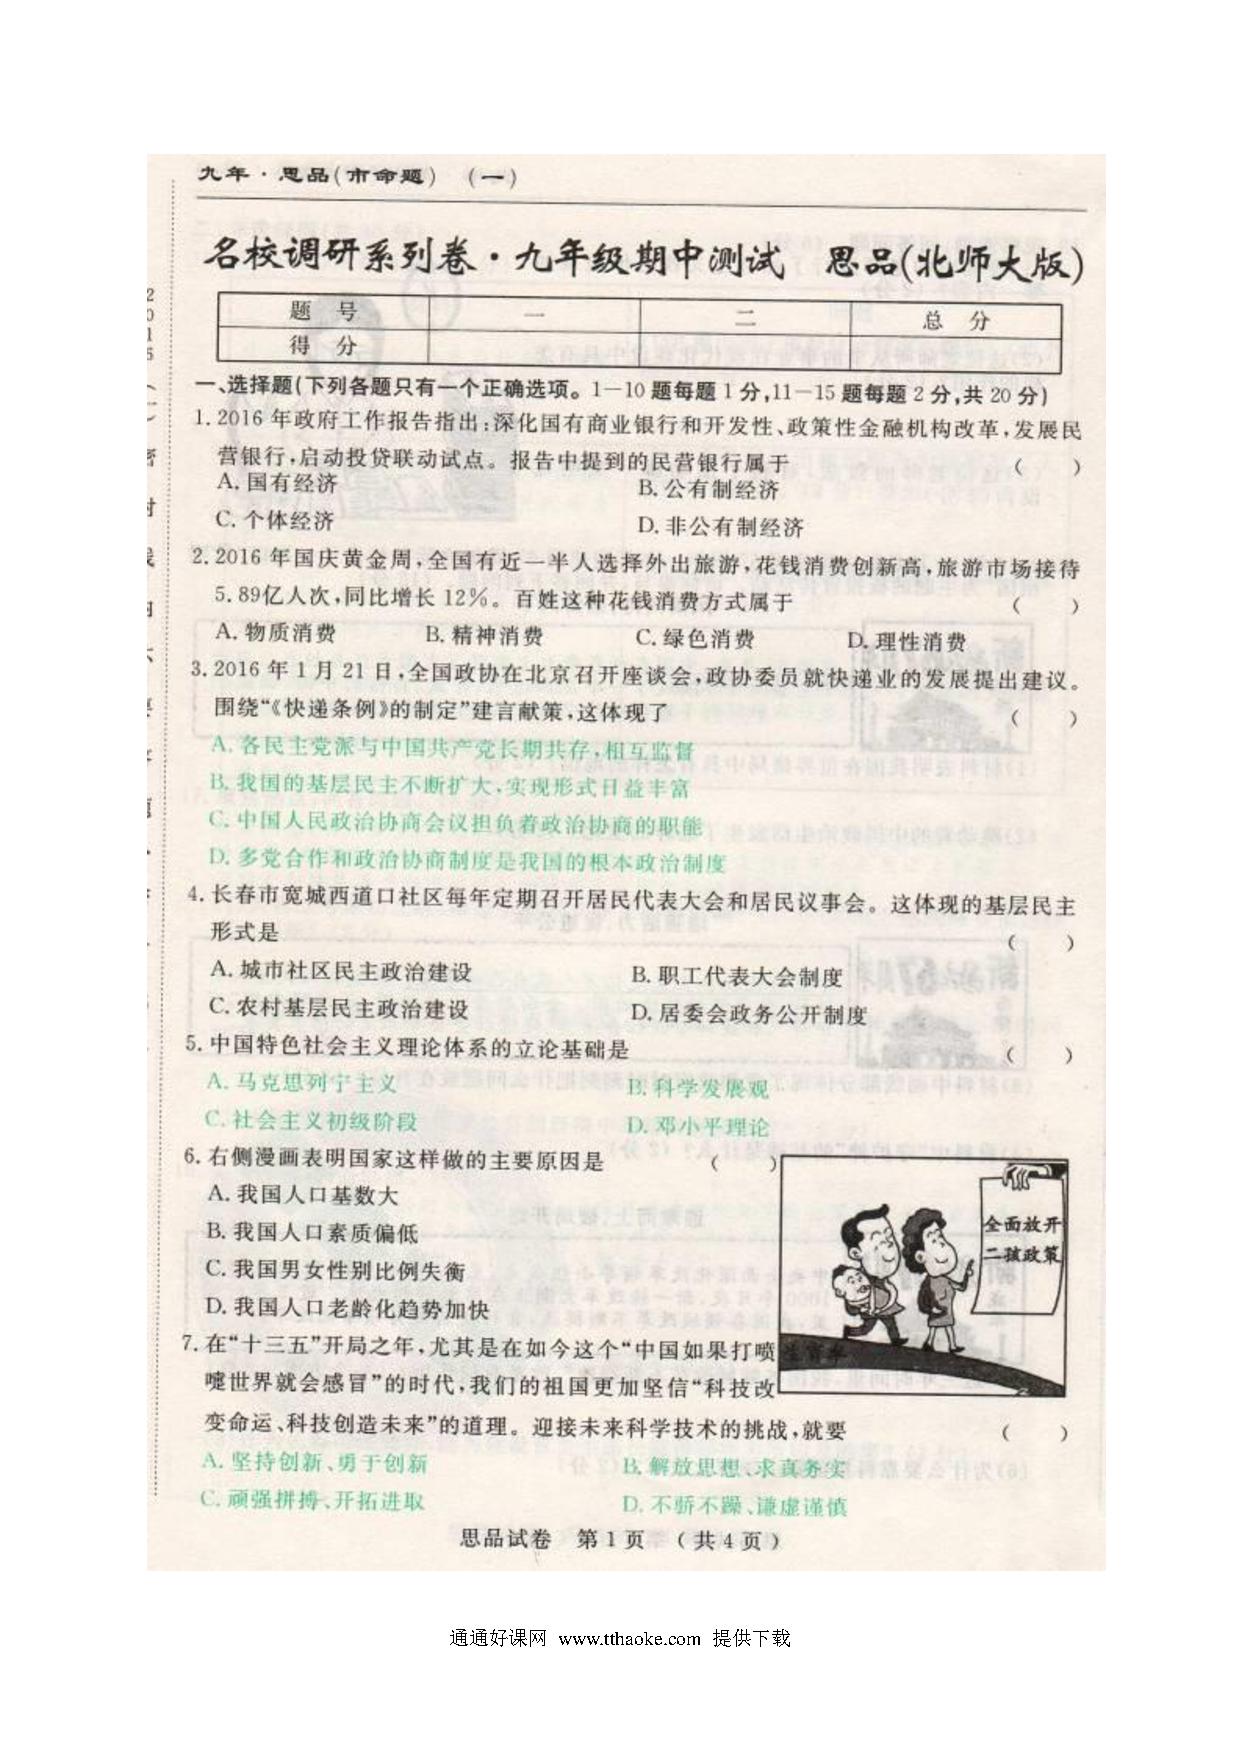 九年·思品(市命题) (一)
名校调研系列卷·九年级期中测试 思品(北师大版)
题 号 一 二 总 分
得 分
一、选择题(下列各题只有一个正确选项。1—10题每题1分,11—15题每题2分,共20分)
1. 2016年政府工作报告指出:深化国有商业银行和开发性、政策性金融机构改革,发展民
营银行,启动投贷联动试点。报告中提到的民营银行属于 ( )
A. 国有经济 B. 公有制经济
C. 个体经济 D. 非公有制经济
2. 2016年国庆黄金周,全国有近一半人选择外出旅游,花钱消费创新高,旅游市场接待
5.89亿人次,同比增长12%。百姓这种花钱消费方式属于 ( )
A. 物质消费 B. 精神消费 C. 绿色消费 D. 理性消费
3. 2016年1月21日,全国政协在北京召开座谈会,政协委员就快递业的发展提出建议。
围绕“《快递条例》的制定”建言献策,这体现了 ( )
A. 各民主党派与中国共产党长期共存,相互监督
B. 我国的基层民主不断扩大,实现形式日益丰富
C. 中国人民政治协商会议担负着政治协商的职能
D. 多党合作和政治协商制度是我国的根本政治制度
4. 长春市宽城西道口社区每年定期召开居民代表大会和居民议事会。这体现的基层民主
形式是 ( )
A. 城市社区民主政治建设 B. 职工代表大会制度
C. 农村基层民主政治建设 D. 居委会政务公开制度
5. 中国特色社会主义理论体系的立论基础是 ( )
A. 马克思列宁主义 B. 科学发展观
C. 社会主义初级阶段 D. 邓小平理论
6. 右侧漫画表明国家这样做的主要原因是 ( )
A. 我国人口基数大
B. 我国人口素质偏低
C. 我国男女性别比例失衡
D. 我国人口老龄化趋势加快
全面放开
二孩政策
生育率
7. 在“十三五”开局之年,尤其是在如今这个“中国如果打喷
嚏世界就会感冒”的时代,我们的祖国更加坚信“科技改
变命运、科技创造未来”的道理。迎接未来科学技术的挑战,就要 ( )
A. 坚持创新、勇于创新 B. 解放思想、求真务实
C. 顽强拼搏、开拓进取 D. 不骄不躁、谦虚谨慎
思品试卷 第1页 (共4页)
通通好课网 www.tthaoke.com 提供下载